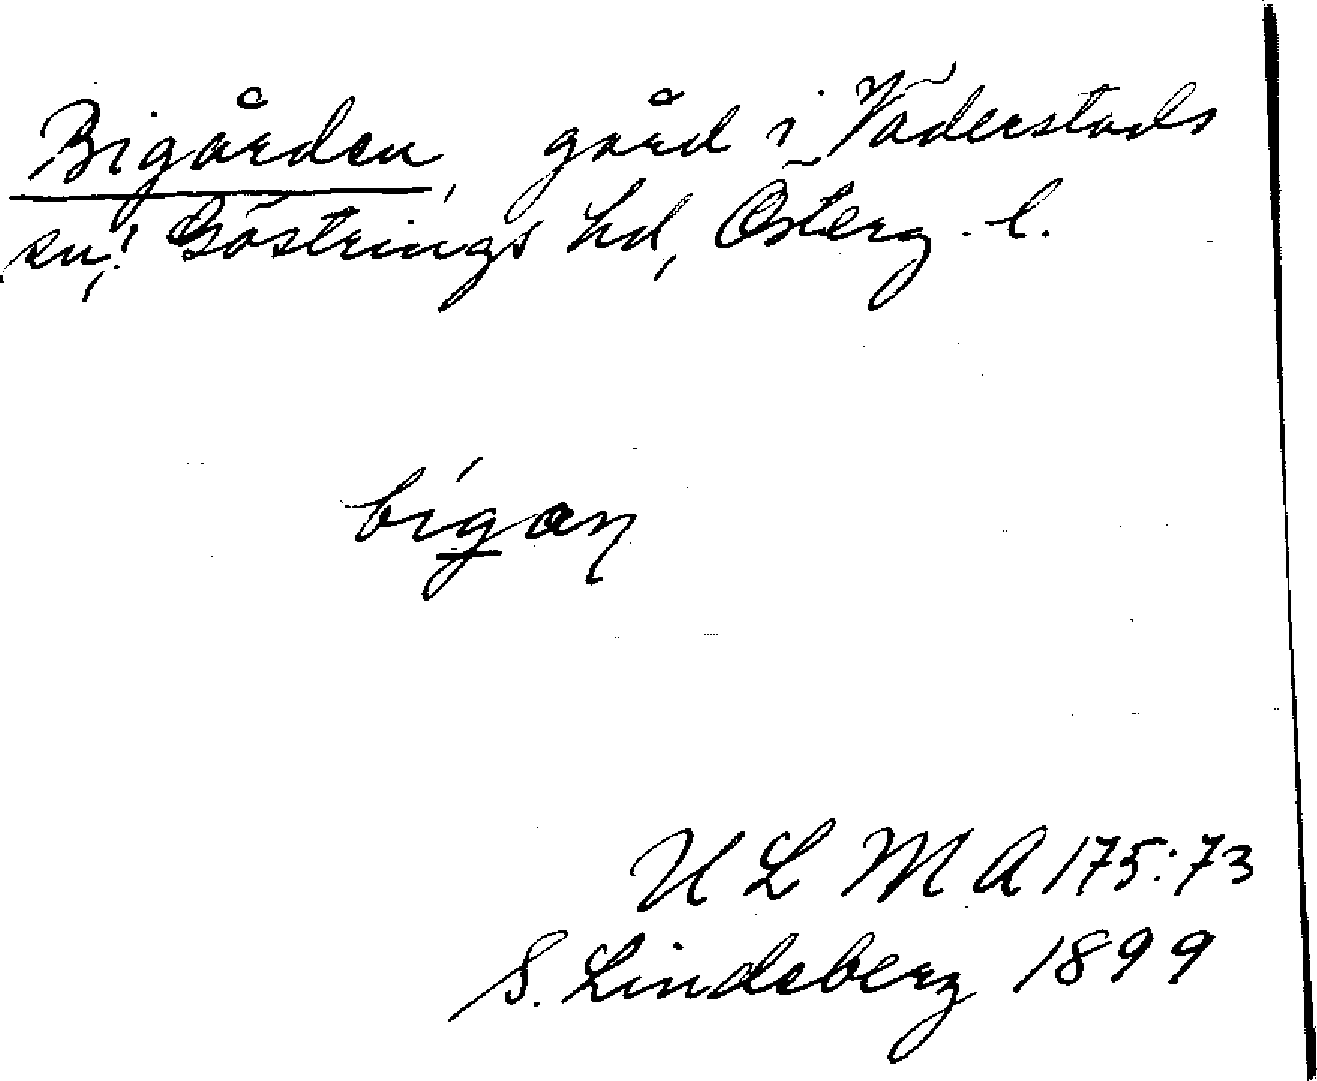 Bigården, gård i Väderstads
sn, Göstrings hd, Österg. l.
bígaṉ
U L M A 175:73
S. Lindeberg 1899